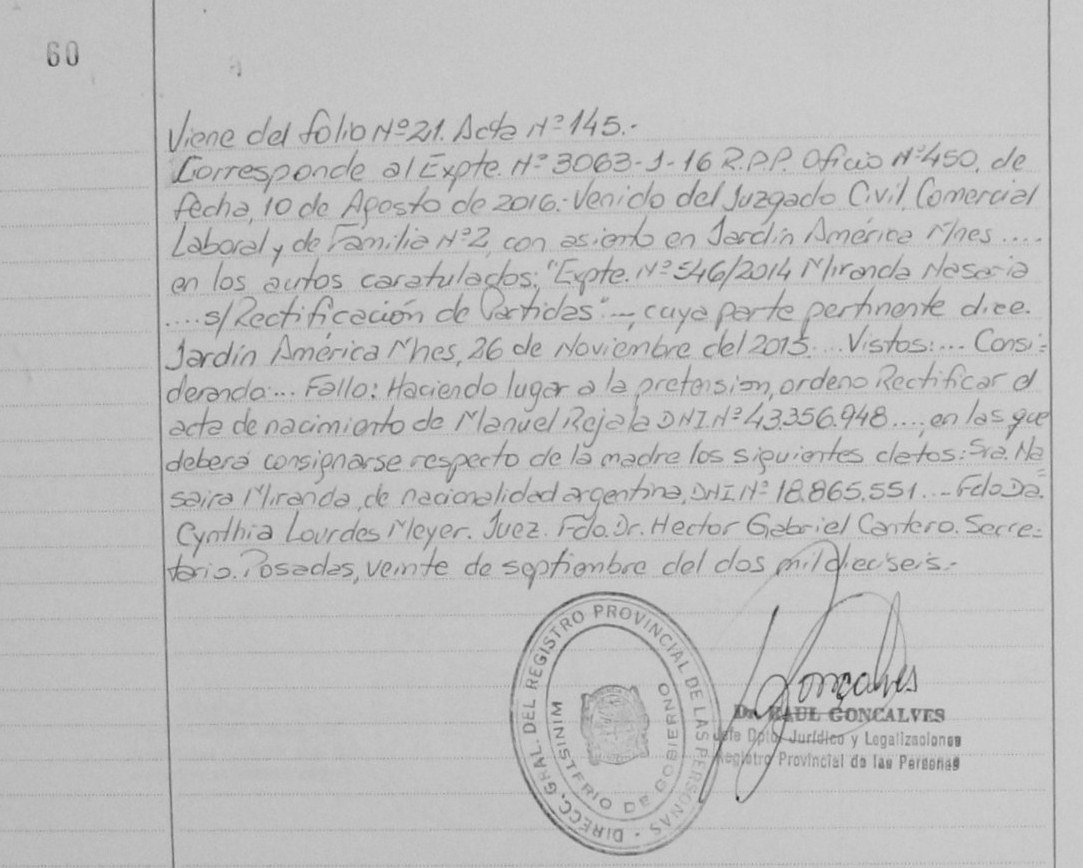 60
Viene del folio Nº 21. Acta Nº 145.-
Corresponde al Expte. Nº 3063-J-16 R.P.P. Oficio Nº 450, de
fecha, 10 de Agosto de 2016.- Venido del Juzgado Civil, Comercial
Laboral y de Familia Nº 2, con asiento en Jardín América Mnes ....
en los autos caratulados: "Expte. Nº 546/2014 Miranda Nasaria
.... s/Rectificación de Partidas" -, cuya parte pertinente dice.
Jardín América Mnes, 26 de Noviembre del 2015 ... Vistos: ... Consi-
derando ... Fallo: Haciendo lugar a la pretension, ordeno Rectificar el
acta de nacimiento de Manuel Rojala DNI. Nº 43.356.948 ...., en las que
deberá consignarse respecto de la madre los siguientes datos: Sra. Na=
saira Miranda, de nacionalidad argentina, DNI. Nº 18.865.551 ... - Fdo Dra.
Cynthia Lourdes Meyer. Juez. Fdo. Dr. Hector Gabriel Cantero. Secre=
tario. Posadas, veinte de septiembre del dos mil dieciseis.-
DIRECC. GRAL. DEL REGISTRO PROVINCIAL DE LAS PERSONAS
MINISTERIO DE GOBIERNO
Gonçalves
Dr. RAUL GONCALVES
Jefe Dpto. Jurídico y Legalizaciones
Registro Provincial de las Personas